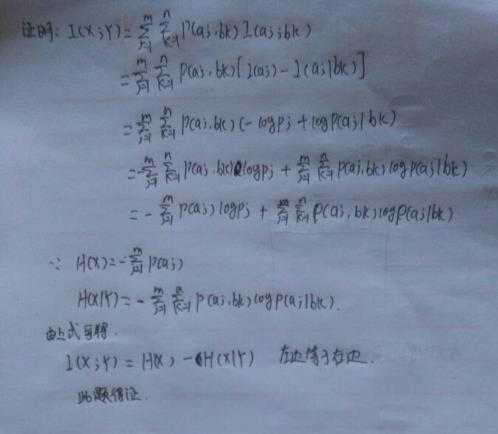 证明: I(X;Y)=∑_{j=1}^{m}∑_{k=1}^{n}P(aj,bk)I(aj;bk)
=∑_{j=1}^{m}∑_{k=1}^{n}P(aj,bk)[I(aj)-I(aj|bk)]
=∑_{j=1}^{m}∑_{k=1}^{n}P(aj,bk)(-logpj+logp(aj|bk)
=-∑_{j=1}^{m}∑_{k=1}^{n}P(aj,bk)logpj+∑_{j=1}^{m}∑_{k=1}^{n}P(aj,bk)logp(aj|bk)
=-∑_{j=1}^{m}P(aj)logpj+∑_{j=1}^{m}∑_{k=1}^{n}P(aj,bk)logp(aj|bk)
∵ H(X)=-∑_{j=1}^{m}P(aj)
H(X|Y)=-∑_{j=1}^{m}∑_{k=1}^{n}P(aj,bk)logp(aj|bk).
由上式可得.
I(X;Y)=H(X)-H(X|Y) 左边等于右边.
此题得证.